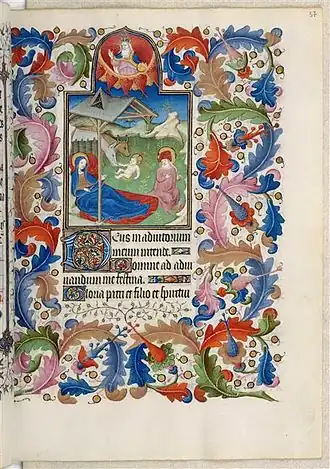 37
Deus in adiutorium
meum intende.
Domine ad adiu
uandum me festina.
Gloria patri et filio et spiritui